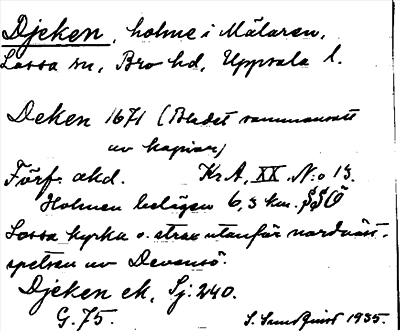 Djeken, holme i Mälaren,
Lossa sn, Bro hd, Uppsala l.
Deken 1671 (Bladet sammansatt
av kopior)
Förf. akd. KrA, XX. N:o 13.
Holmen belägen 6,3 km. SSÖ
Lossa kyrka o. strax utanför nordväst-
spetsen av Devensö.
Djeken ek, Sj: 240.
G. 75. S. Sundquist 1935.